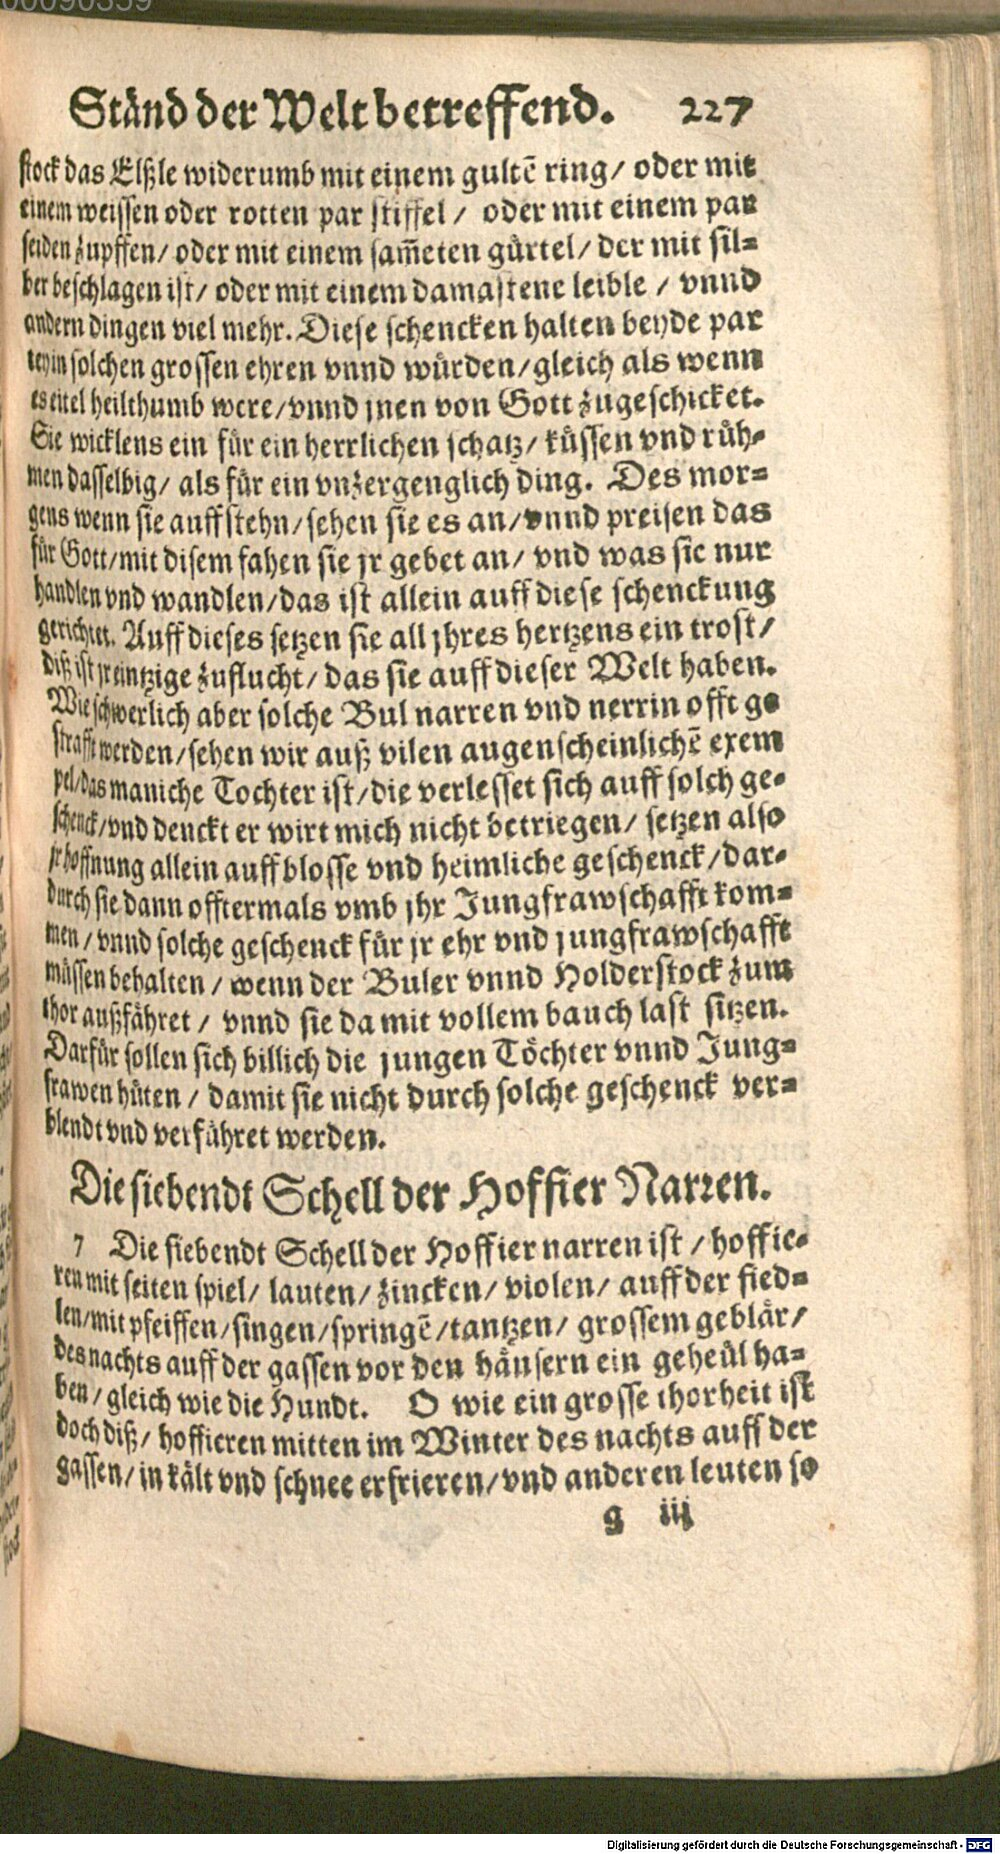 00090359
Ständ der Welt betreffend. 227
stock das Elßle widerumb mit einem gultẽ ring/ oder mit
einem weissen oder rotten par stiffel/ oder mit einem par
seiden zupffen/ oder mit einem sam̃eten gürtel/ der mit sil=
ber beschlagen ist/ oder mit einem damastene leible/ vnnd
andern dingen viel mehr. Diese schencken halten beyde par
tey in solchen grossen ehren vnnd würden/ gleich als wenn
es eitel heilthumb were/ vnnd jnen von Gott zugeschicket.
Sie wicklens ein für ein herrlichen schatz/ küssen vnd rüh=
men dasselbig/ als für ein vnzergenglich ding. Des mor=
gens wenn sie auffstehn/ sehen sie es an/ vnnd preisen das
für Gott/ mit disem fahen sie jr gebet an/ vnd was sie nur
handlen vnd wandlen/ das ist allein auff diese schenckung
gerichtet. Auff dieses setzen sie all jhres hertzens ein trost/
diß ist jr eintzige zuflucht/ das sie auff dieser Welt haben.
Wie schwerlich aber solche Bul narren vnd nerrin offt ge
strafft werden/ sehen wir auß vilen augenscheinlichẽ exem
pel/ das maniche Tochter ist/ die verlesset sich auff solch ge=
schenck/ vnd denckt er wirt mich nicht betriegen/ setzen also
jr hoffnung allein auff blosse vnd heimliche geschenck/ dar=
durch sie dann offtermals vmb jhr Jungfrawschafft kom=
men/ vnnd solche geschenck für jr ehr vnd jungfrawschafft
müssen behalten/ wenn der Buler vnnd Holderstock zum
thor außfähret/ vnnd sie da mit vollem bauch last sitzen.
Darfür sollen sich billich die jungen Töchter vnnd Jung=
frawen hüten/ damit sie nicht durch solche geschenck ver=
blendt vnd verfähret werden.
Die siebendt Schell der Hoffier Narren.
7 Die siebendt Schell der Hoffier narren ist/ hoffie=
ren mit seiten spiel/ lauten/ zincken/ violen/ auff der fied=
len/ mit pfeiffen/ singen/ springẽ/ tantzen/ grossem geblär/
des nachts auff der gassen vor den häusern ein geheül ha=
ben/ gleich wie die Hundt. O wie ein grosse thorheit ist
doch diß/ hoffieren mitten im Winter des nachts auff der
gassen/ in kält vnd schnee erfrieren/ vnd anderen leuten so
g iij
Digitalisierung gefördert durch die Deutsche Forschungsgemeinschaft - DFG